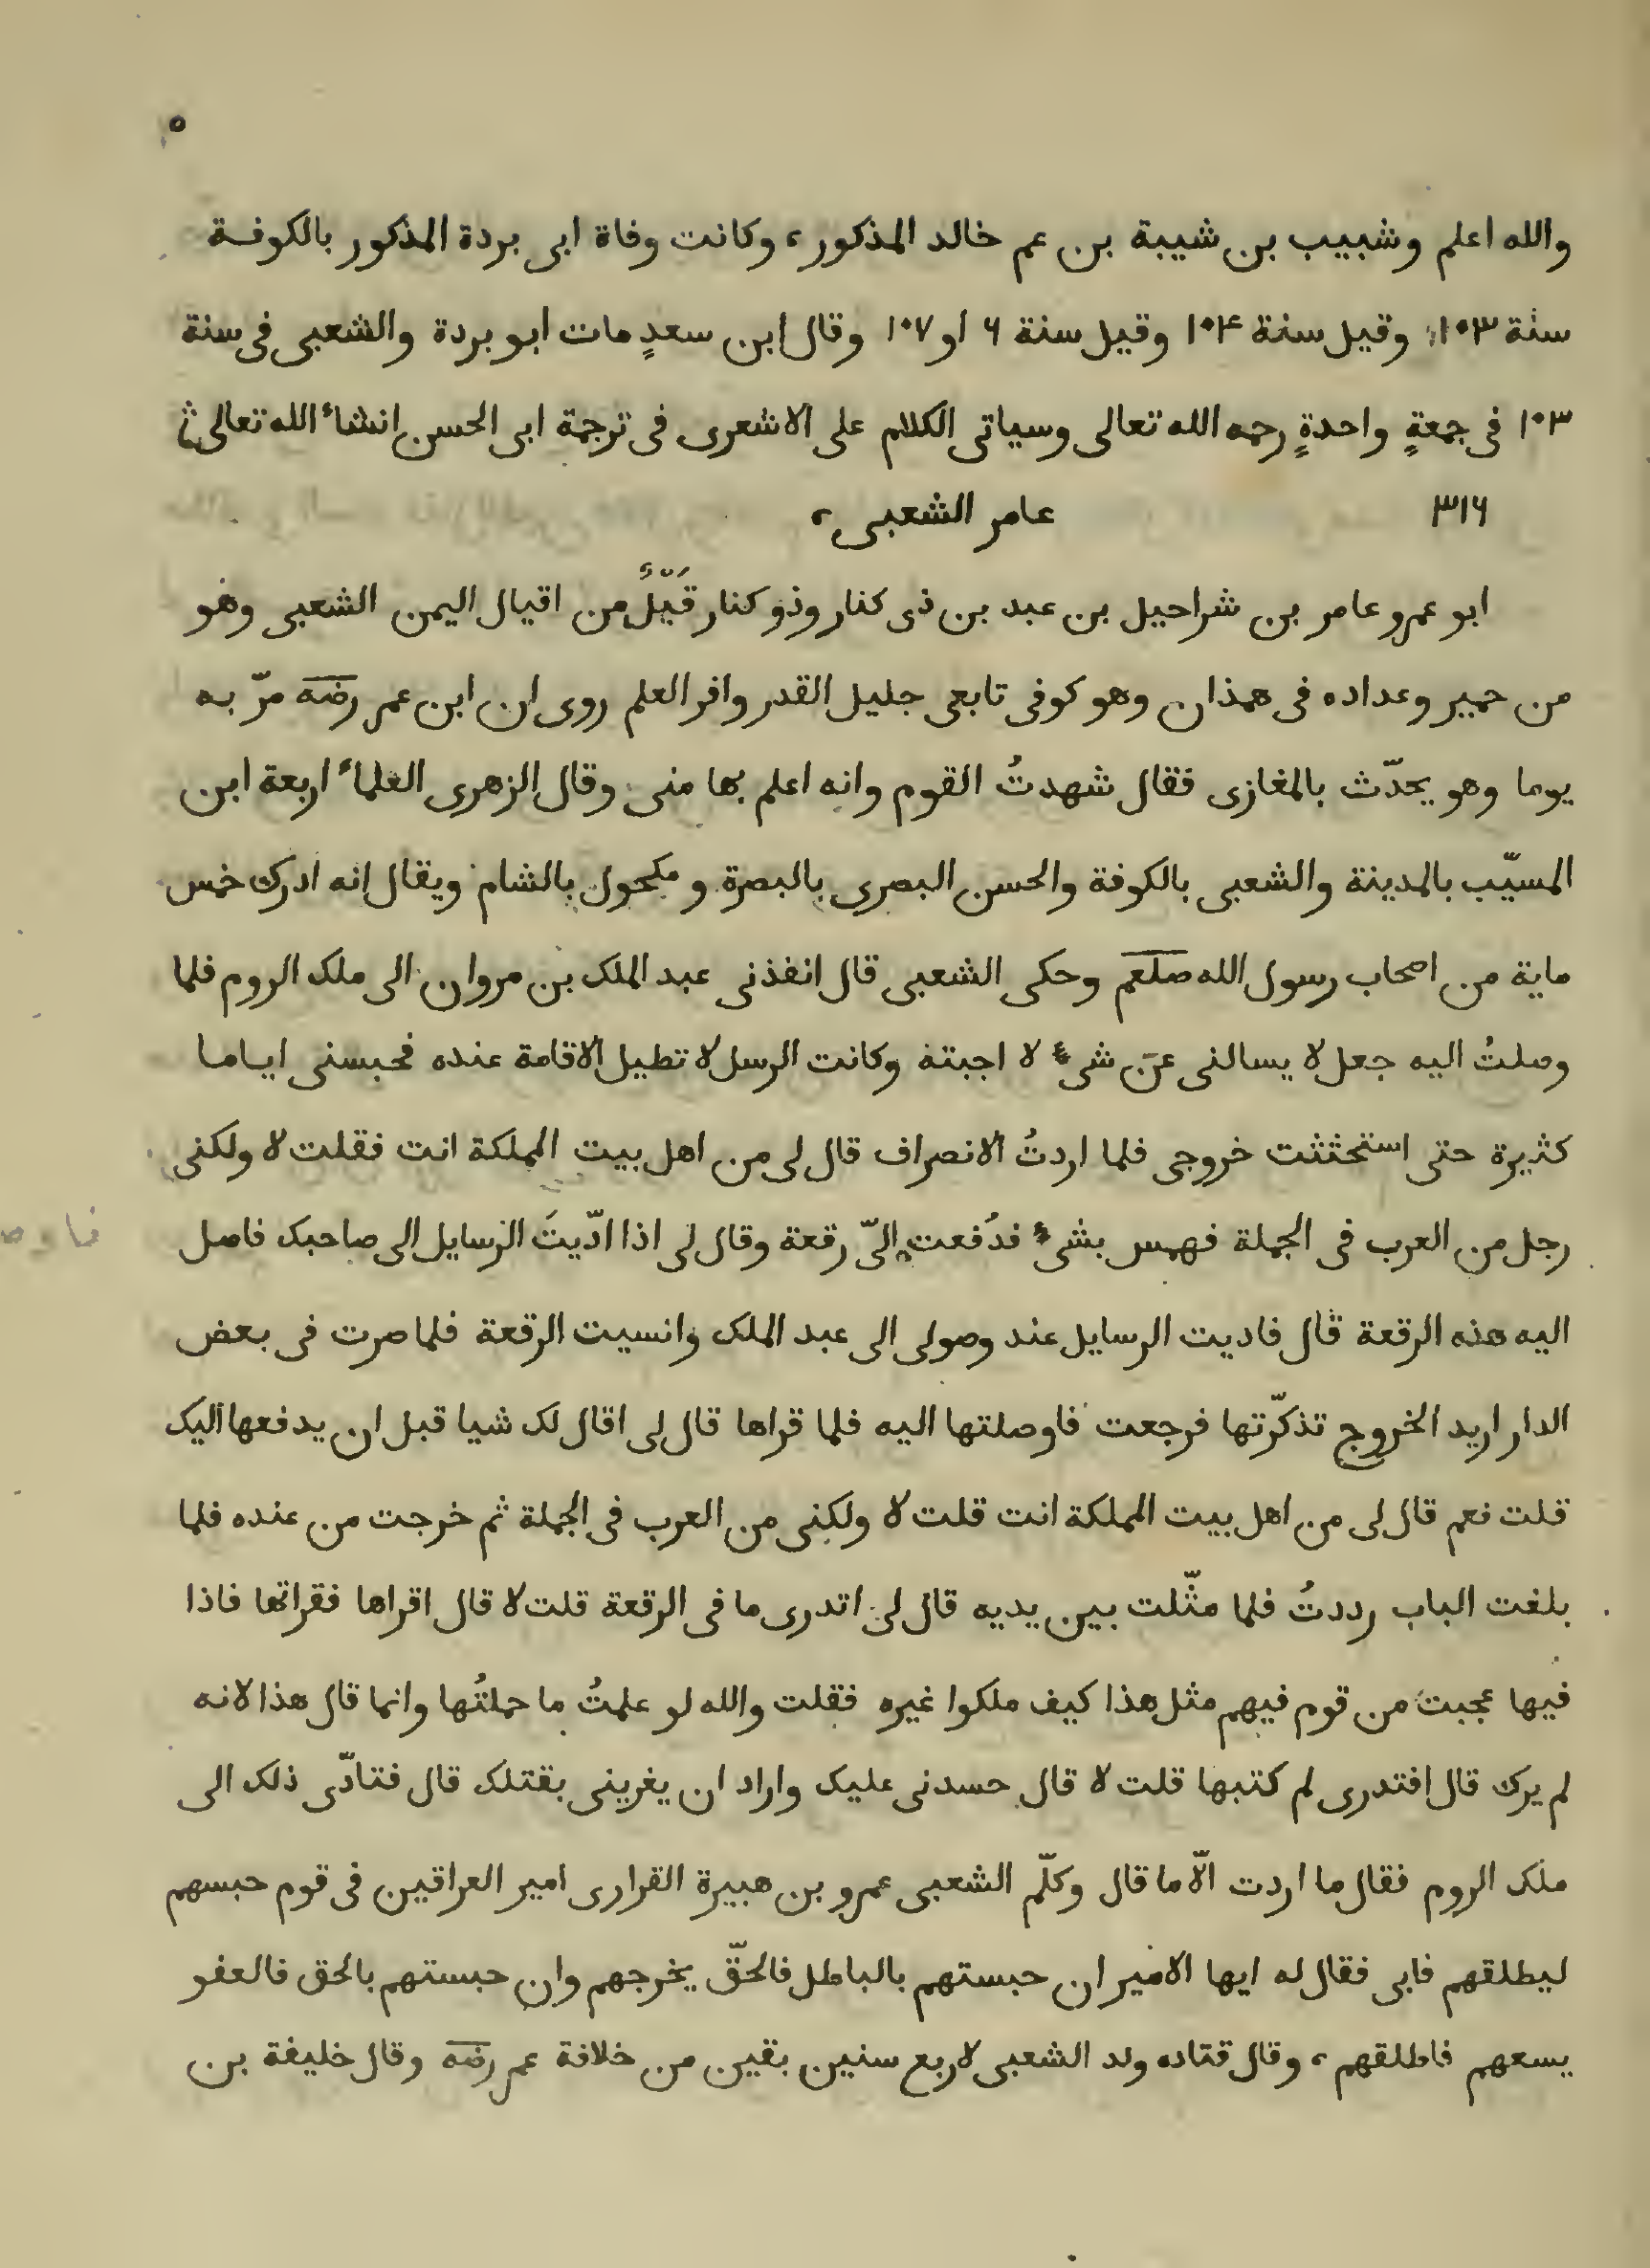 ٥
والله اعلم وشبيب بن شيبة بن عم خالد المذكور، وكانت وفاة ابى بردة المذكور بالكوفة
سنة ١٠٣ وقيل سنة ١٠۴ وقيل سنة ۶ او ١٠٧ وقال ابن سعدٍ مات ابو بردة والشعبى فى سنة
١٠٣ فى جمعةٍ واحدةٍ رحمه الله تعالى وسياتى الكلام على الاشعرى فى ترجمة ابى الحسن انشاء الله تعالى
٣١۶ عامر الشعبى،
ابو عمرو عامر بن شراحيل بن عبد بن ذى كنار وذو كنار قَيّلٌ من اقيال اليمن الشعبى وهو
من حمير وعداده فى همذان وهو كوفى تابعى جليل القدر وافر العلم روى ان ابن عمر رضه مرّ به
يوما وهو يحدّث بالمغازى فقال شهدتُ القوم وانه اعلم بها منى وقال الزهرى العلماء اربعة ابن
المسيّب بالمدينة والشعبى بالكوفة والحسن البصرى بالبصرة و مكحول بالشام ويقال انه ادرك خمس
ماية من اصحاب رسول الله صلعم وحكى الشعبى قال انفذنى عبد الملک بن مروان الى ملک الروم فلما
وصلتُ اليه جعل لا يسالنى عن شىء لا اجبته وكانت الرسل لا تطيل الاقامة عنده فحبسنى اياما
كثيرة حتى استحثثت خروجى فلما اردتُ الانصراف قال لى من اهل بيت المملكة انت فقلت لا ولكنى
رجل من العرب فى الجملة فهمس بشىء فدُفعت الىّ رقعة وقال لى اذا ادّيتَ الرسايل الى صاحبک فاصل
اليه هذه الرقعة قال فاديت الرسايل عند وصولى الى عبد الملک وانسيت الرقعة فلما صرت فى بعض
الدار اريد الخروج تذكّرتها فرجعت فاوصلتها اليه فلما قراها قال لى اقال لک شيا قبل ان يدفعها اليک
قلت نعم قال لى من اهل بيت المملكة انت قلت لا ولكنى من العرب فى الجملة ثم خرجت من عنده فلما
بلغت الباب رددتُ فلما مثّلت بين يديه قال لى اتدرى ما فى الرقعة قلت لا قال اقراها فقراتها فاذا
فيها عجبت من قوم فيهم مثل هذا كيف ملكوا غيره فقلت والله لو علمتُ ما حملتُها وانما قال هذا لانه
لم يرك قال افتدرى لم كتبها قلت لا قال حسدنى عليک واراد ان يغرينى بقتلک قال فتادّى ذلک الى
ملک الروم فقال ما اردت الّا ما قال وكلّم الشعبى عمرو بن هبيرة القرارى امير العراقين فى قوم حبسهم
ليطلقهم فابى فقال له ايها الامير ان حبستهم بالباطل فالحقّ يخرجهم وان حبستهم بالحق فالعفو
يسعهم فاطلقهم، وقال قتاده ولد الشعبى لاربع سنين بقين من خلافة عمر رضه وقال خليفة بن